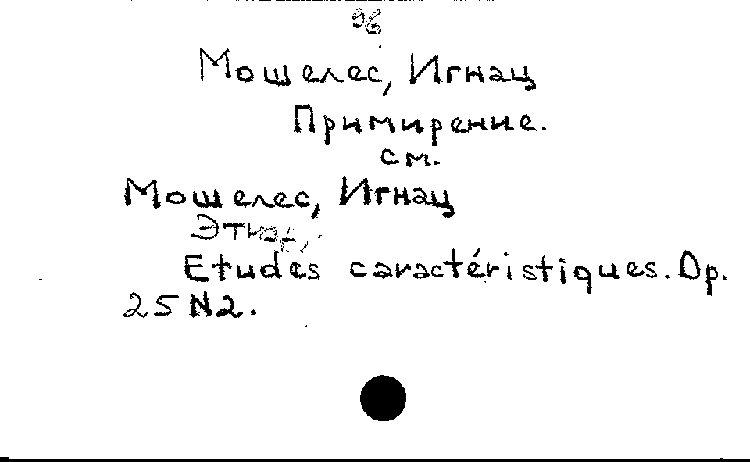 96
Мошелес, Игнац
Примирение.
см.
Мошелес, Игнац
Etudes caractéristiques. Op.
25 N2.